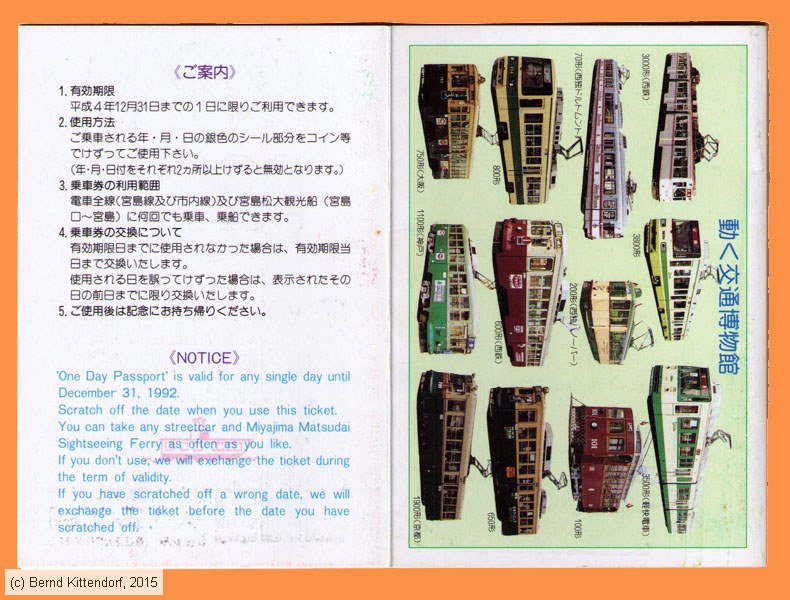 《ご案内》
1. 有効期限
平成4年12月31日までの1日に限りご利用できます。
2. 使用方法
ご乗車される年・月・日の銀色のシール部分をコイン等
でけずってご使用下さい。
(年・月・日付をそれぞれ2ヵ所以上けずると無効となります。)
3. 乗車券の利用範囲
電車全線(宮島線及び市内線)及び宮島松大観光船(宮島
口〜宮島)に何回でも乗車、乗船できます。
4. 乗車券の交換について
有効期限日までに使用されなかった場合は、有効期限当
日まで交換いたします。
使用される日を誤ってけずった場合は、表示されたその
日の前日までに限り交換いたします。
5. ご使用後は記念にお持ち帰りください。
《NOTICE》
'One Day Passport' is valid for any single day until
December 31, 1992.
Scratch off the date when you use this ticket.
You can take any streetcar and Miyajima Matsudai
Sightseeing Ferry as often as you like.
If you don't use, we will exchange the ticket during
the term of validity.
If you have scratched off a wrong date, we will
exchange the ticket before the date you have
scratched off.
動く交通博物館
3000形(西鉄)
3800形
3500形(軽快電車)
70形(西独ドルトムント)
200形(西独ハノーバー)
100形
800形
600形(西鉄)
650形
750形(大阪)
1100形(神戸)
1900形(京都)
101
(c) Bernd Kittendorf, 2015